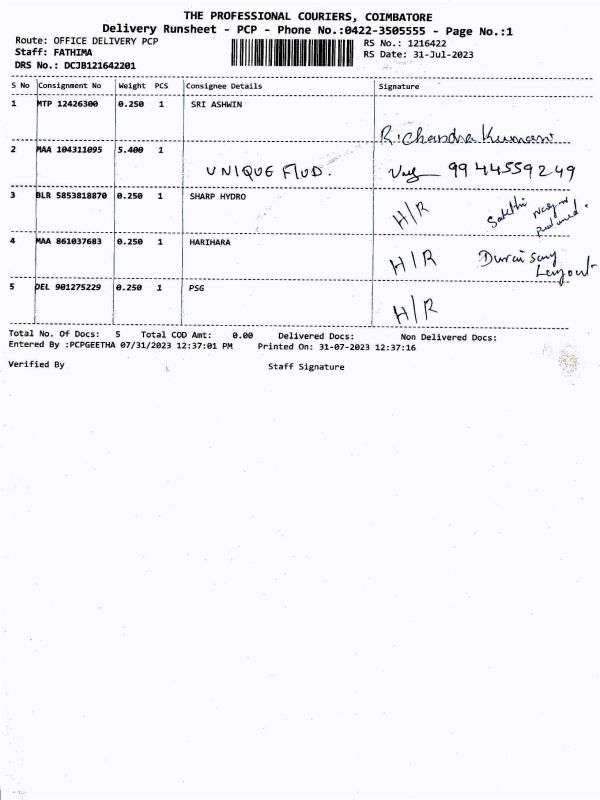 THE PROFESSIONAL COURIERS, COIMBATORE
Delivery Runsheet - PCP - Phone No.:0422-3505555 - Page No.:1
Route: OFFICE DELIVERY PCP RS No.: 1216422
Staff: FATHIMA RS Date: 31-Jul-2023
DRS No.: DCJB121642201
S No Consignment No Weight PCS Consignee Details Signature
1 MTP 12426300 0.250 1 SRI ASHWIN
R.Chandra Kumar
2 MAA 104311095 5.400 1
UNIQUE FLUD. 9944559249
3 BLR 5853818870 0.250 1 SHARP HYDRO
H/R Sakthi
4 MAA 861037683 0.250 1 HARIHARA
H/R Durai Samy
Layout
5 DEL 901275229 0.250 1 PSG
H/R
Total No. Of Docs: 5 Total COD Amt: 0.00 Delivered Docs: Non Delivered Docs:
Entered By :PCPGEETHA 07/31/2023 12:37:01 PM Printed On: 31-07-2023 12:37:16
Verified By Staff Signature